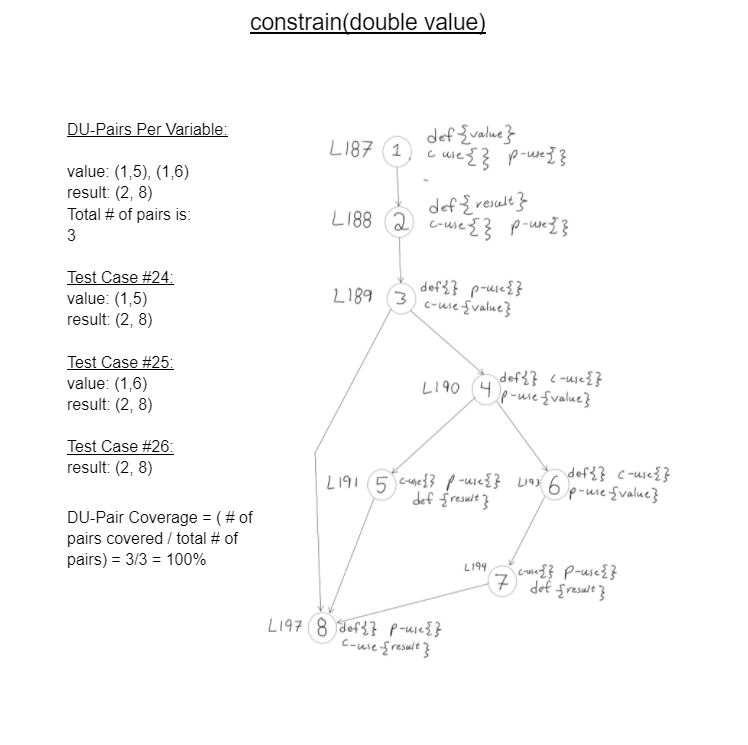 constrain(double value)
DU-Pairs Per Variable:
value: (1,5), (1,6)
result: (2, 8)
Total # of pairs is:
3
Test Case #24:
value: (1,5)
result: (2, 8)
Test Case #25:
value: (1,6)
result: (2, 8)
Test Case #26:
result: (2, 8)
DU-Pair Coverage = ( # of
pairs covered / total # of
pairs) = 3/3 = 100%
L187 1 def {value}
c use{} p-use{}
L188 2 def{result}
c-use{} p-use{}
L189 3 def{} p-use{}
c-use{value}
L190 4 def{} c-use{}
p-use{value}
L191 5 c-use{} p-use{}
def {result}
L193 6 def{} c-use{}
p-use{value}
L194 7 c-use{} p-use{}
def {result}
L197 8 def{} p-use{}
c-use{result}